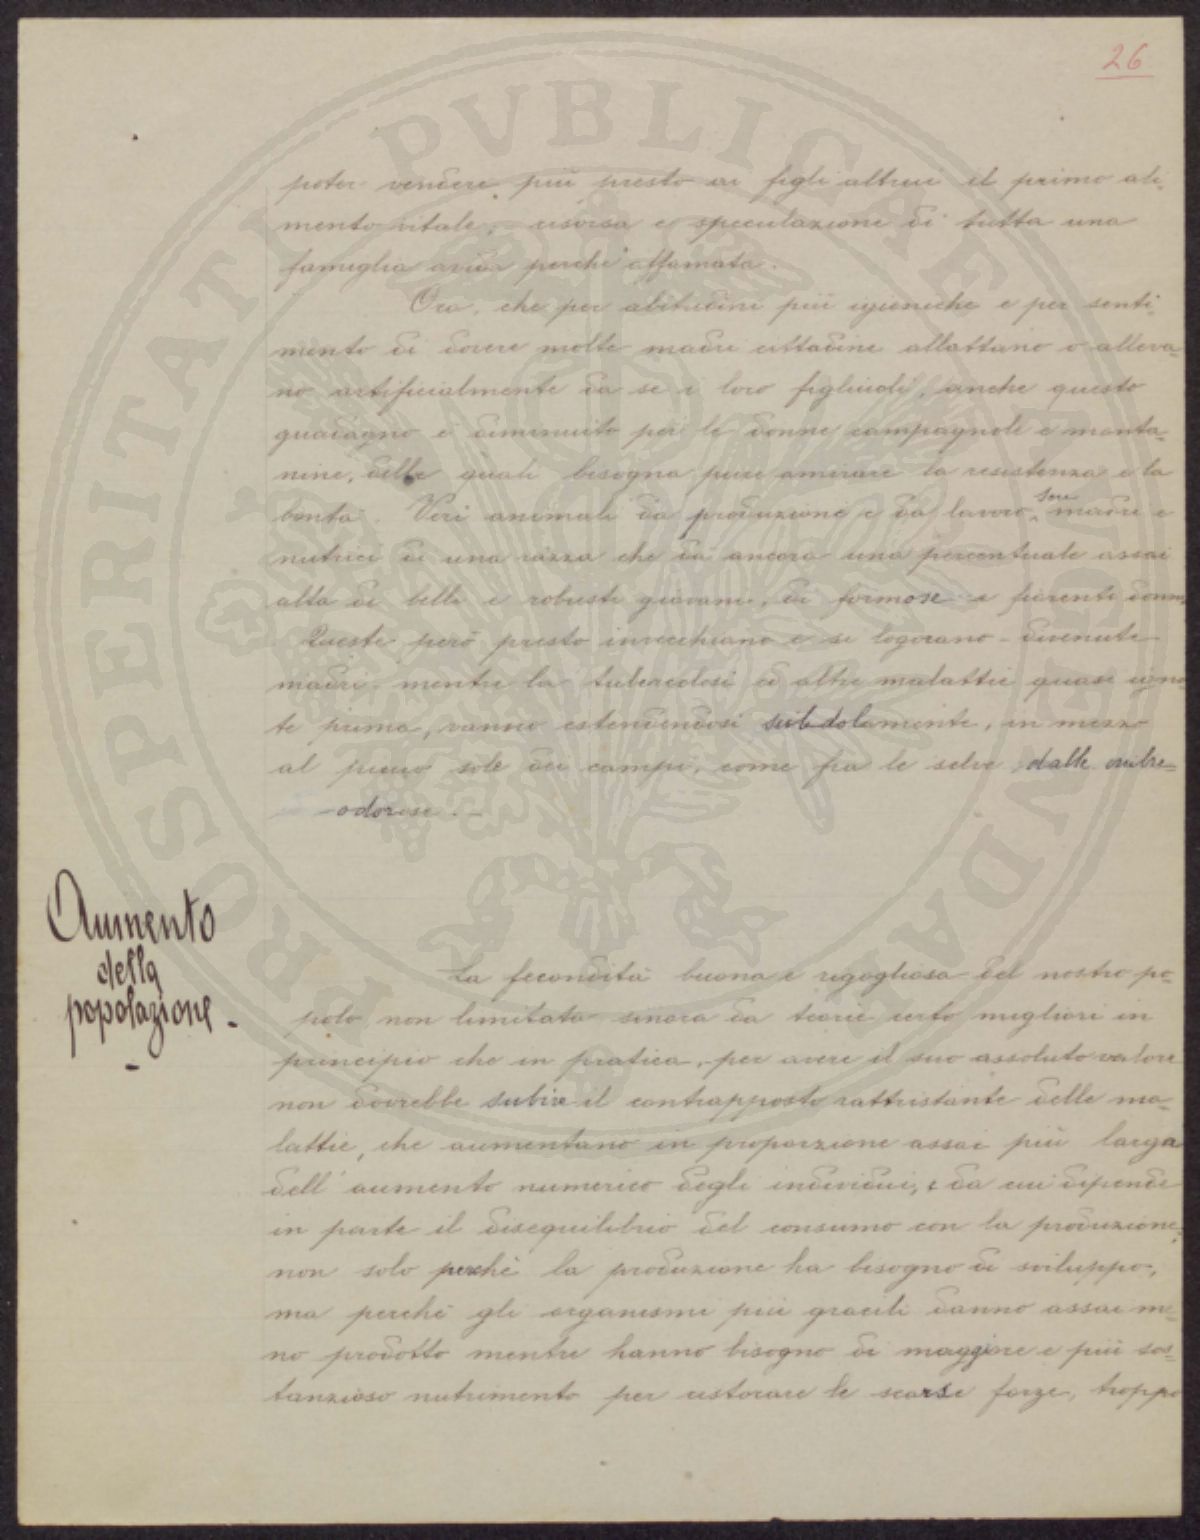 26
poter vendere più presto ai figli altrui il primo ali-
mento vitale, risorsa e speculazione di tutta una
famiglia avida perchè affamata.
Ora, che per abitudini più igieniche e per senti-
mento di dovere molte madri cittadine allattano o alleva-
no artificialmente da se i loro figliuoli, anche questo
guadagno è diminuito per le donne campagnole e monta-
nine, delle quali bisogna pure amirare la resistenza e la
bontà. Veri animali da produzione e da lavoro, son madri e
nutrici di una razza che dà ancora una percentuale assai
alta di belli e robusti giovani, di formose e fiorenti donne
Queste però presto invecchiano e si logorano divenute
madri, mentre la tubercolosi ed altre malattie quasi igno-
te prima, vanno estendendosi subdolamente, in mezzo
al puro sole dei campi, come fra le selve dalle ombre
odorose. -
Aumento
della
popolazione -
La fecondità buona e rigogliosa del nostro po-
polo, non limitata sinora da teorie certo migliori in
principio che in pratica, per avere il suo assoluto valore
non dovrebbe subire il contrapposto rattristante delle ma-
lattie, che aumentano in proporzione assai più larga
dell'aumento numerico degli individui, e da cui dipende
in parte il disequilibrio del consumo con la produzione,
non solo perchè la produzione ha bisogno di sviluppo,
ma perchè gli organismi più gracili danno assai me-
no prodotto mentre hanno bisogno di maggiore e più sos-
tanzioso nutrimento per ristorare le scarse forze, troppo
PROSPERITATI PVBLICAE AVGENDAE